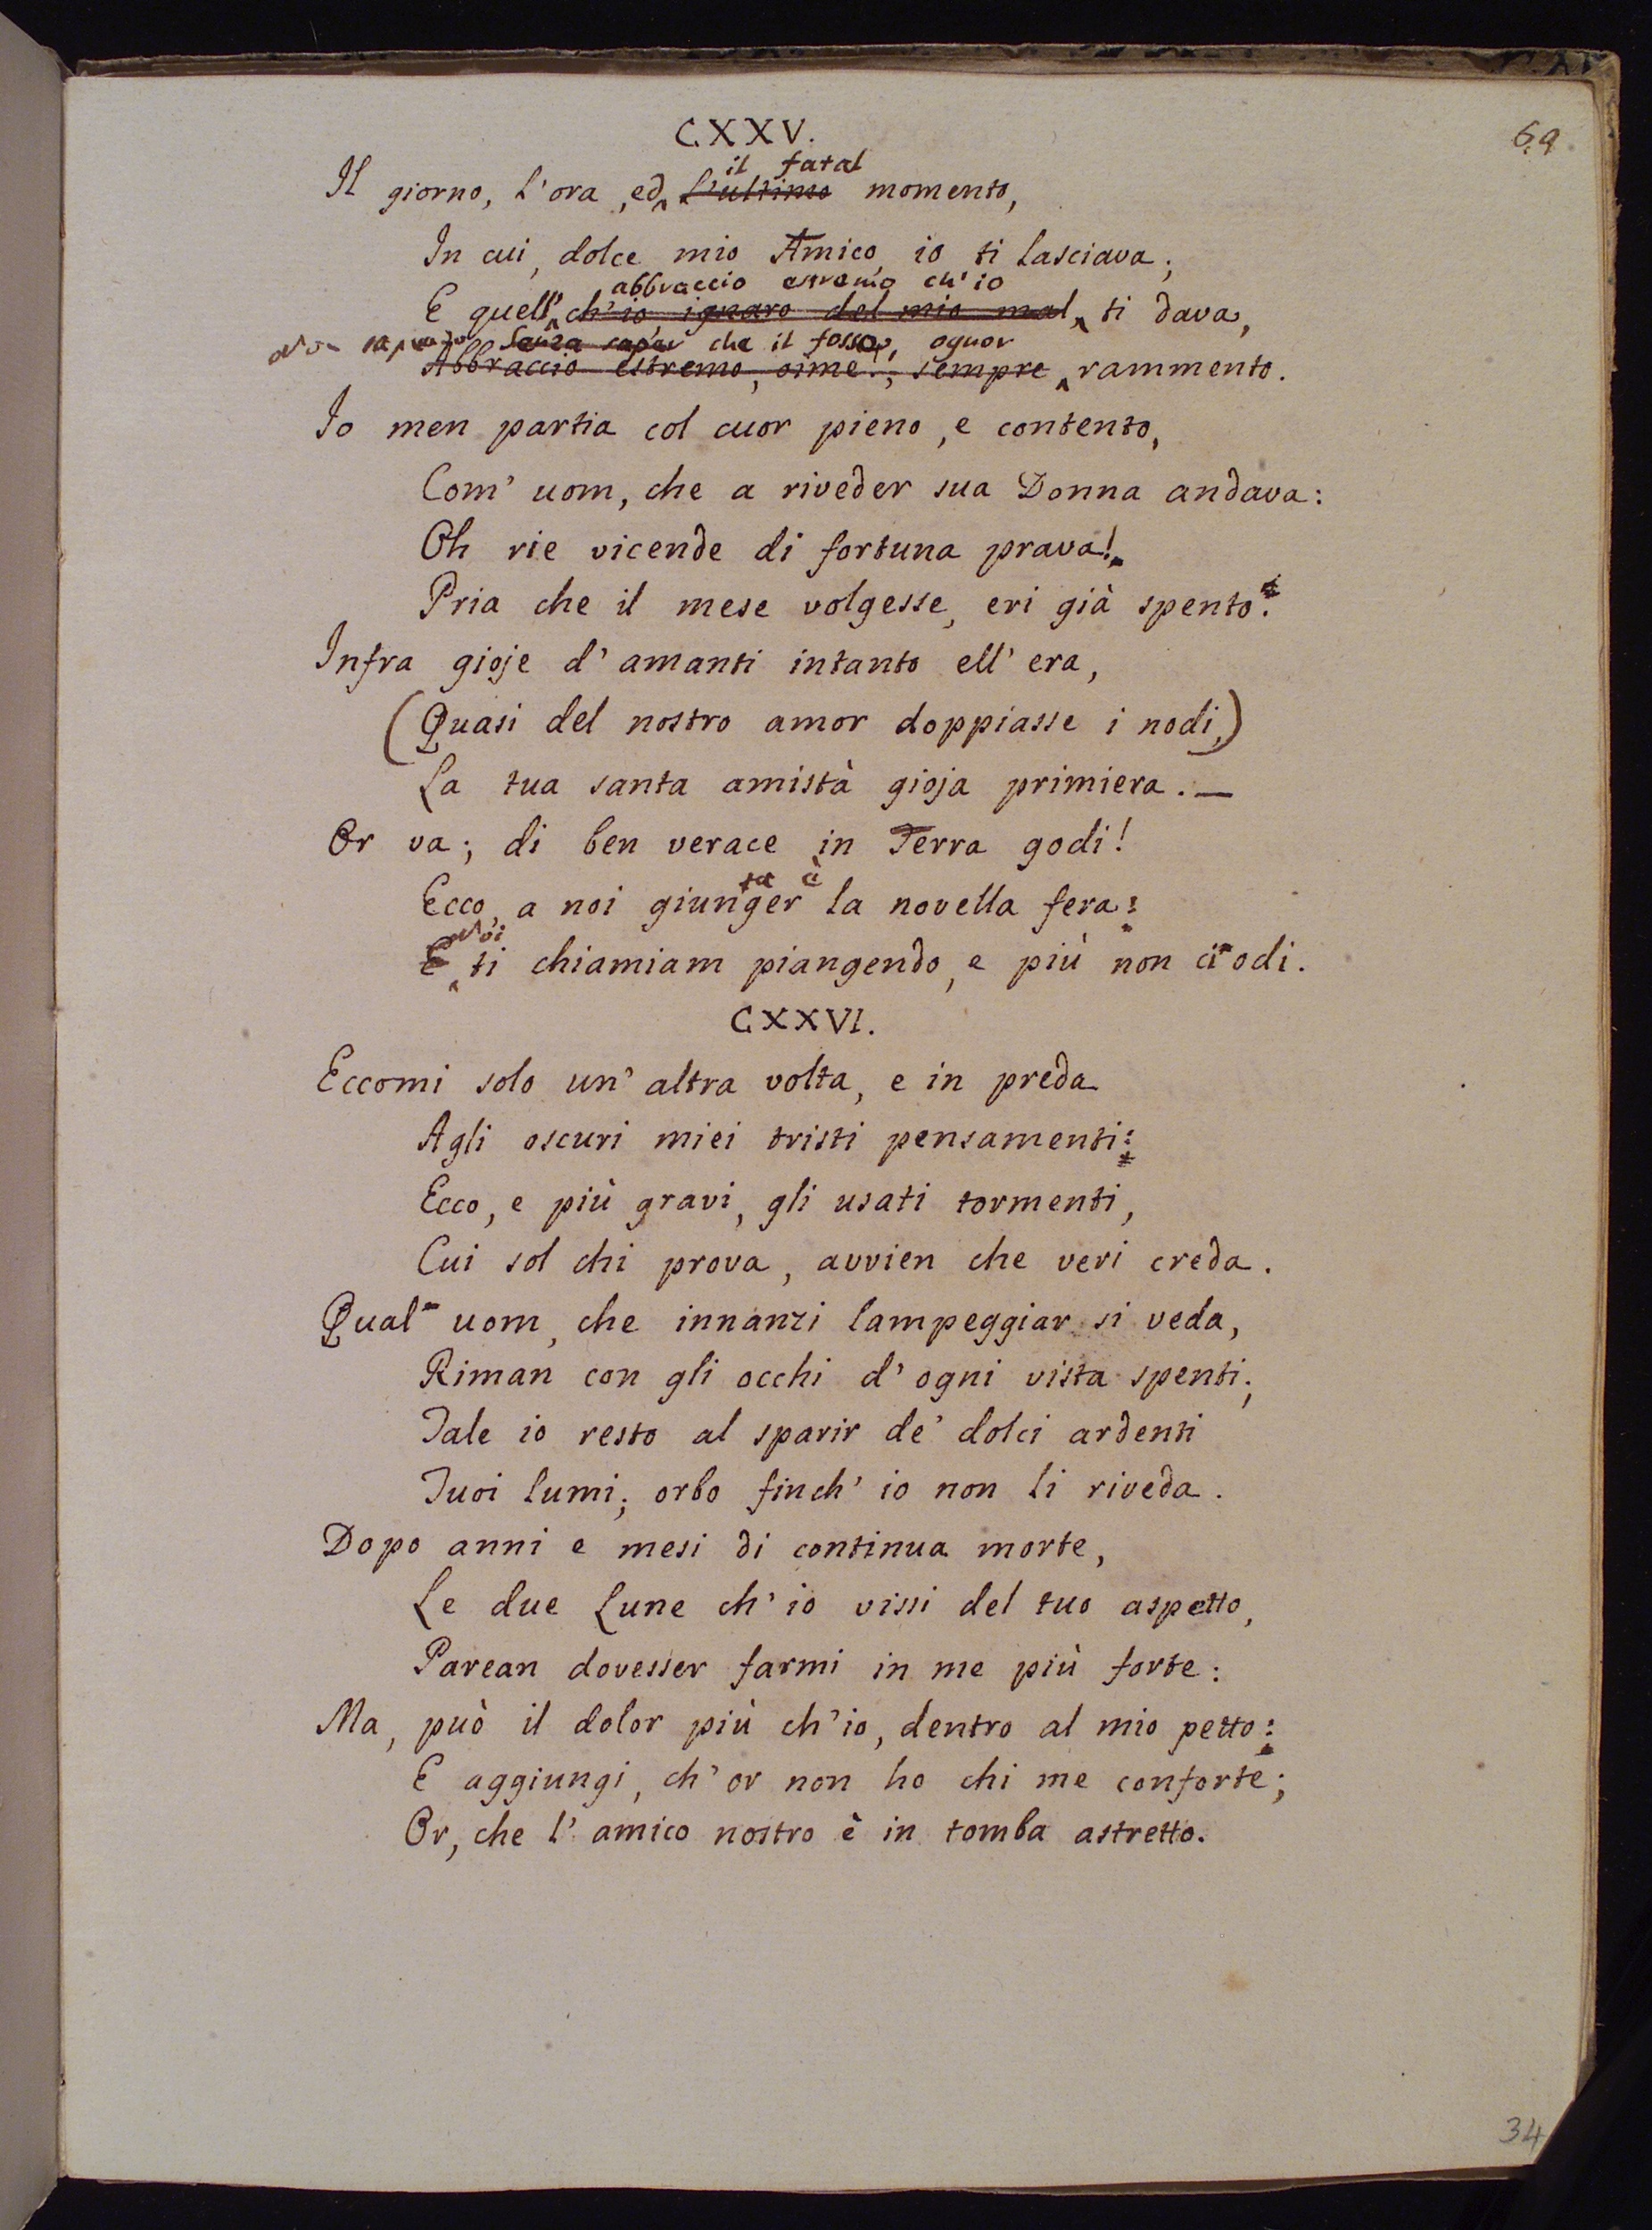 69
CXXV.
il fatal
Il giorno, l'ora, ed l'ultimo momento,
In cui, dolce mio Amico, io ti lasciava;
abbraccio estremo ch'io
E quell' ch'io, ignaro del mio mal, ti dava,
Non sapendo Senza saper che il fosse, ognor
Abbraccio estremo, oimè!, sempre rammento.
Io men partia col cuor pieno, e contento,
Com' uom, che a riveder sua Donna andava:
Oh rie vicende di fortuna prava!
Pria che il mese volgesse, eri già spento.
Infra gioje d'amanti intanto ell'era,
(Quasi del nostro amor doppiasse i nodi,)
La tua santa amistà gioja primiera.—
Or va; di ben verace in Terra godi!
ta è
Ecco, a noi giunger la novella fera:
Noi
E ti chiamiam piangendo, e più non ci odi.
CXXVI.
Eccomi solo un' altra volta, e in preda
Agli oscuri miei tristi pensamenti:
Ecco, e più gravi, gli usati tormenti,
Cui sol chi prova, avvien che veri creda.
Qual uom, che innanzi lampeggiar si veda,
Riman con gli occhi d'ogni vista spenti;
Tale io resto al sparir de' dolci ardenti
Tuoi lumi; orbo finch'io non li riveda.
Dopo anni e mesi di continua morte,
Le due Lune ch'io vissi del tuo aspetto,
Parean dovesser farmi in me più forte:
Ma, può il dolor più ch'io, dentro al mio petto:
E aggiungi, ch'or non ho chi me conforte;
Or, che l'amico nostro è in tomba astretto.
34